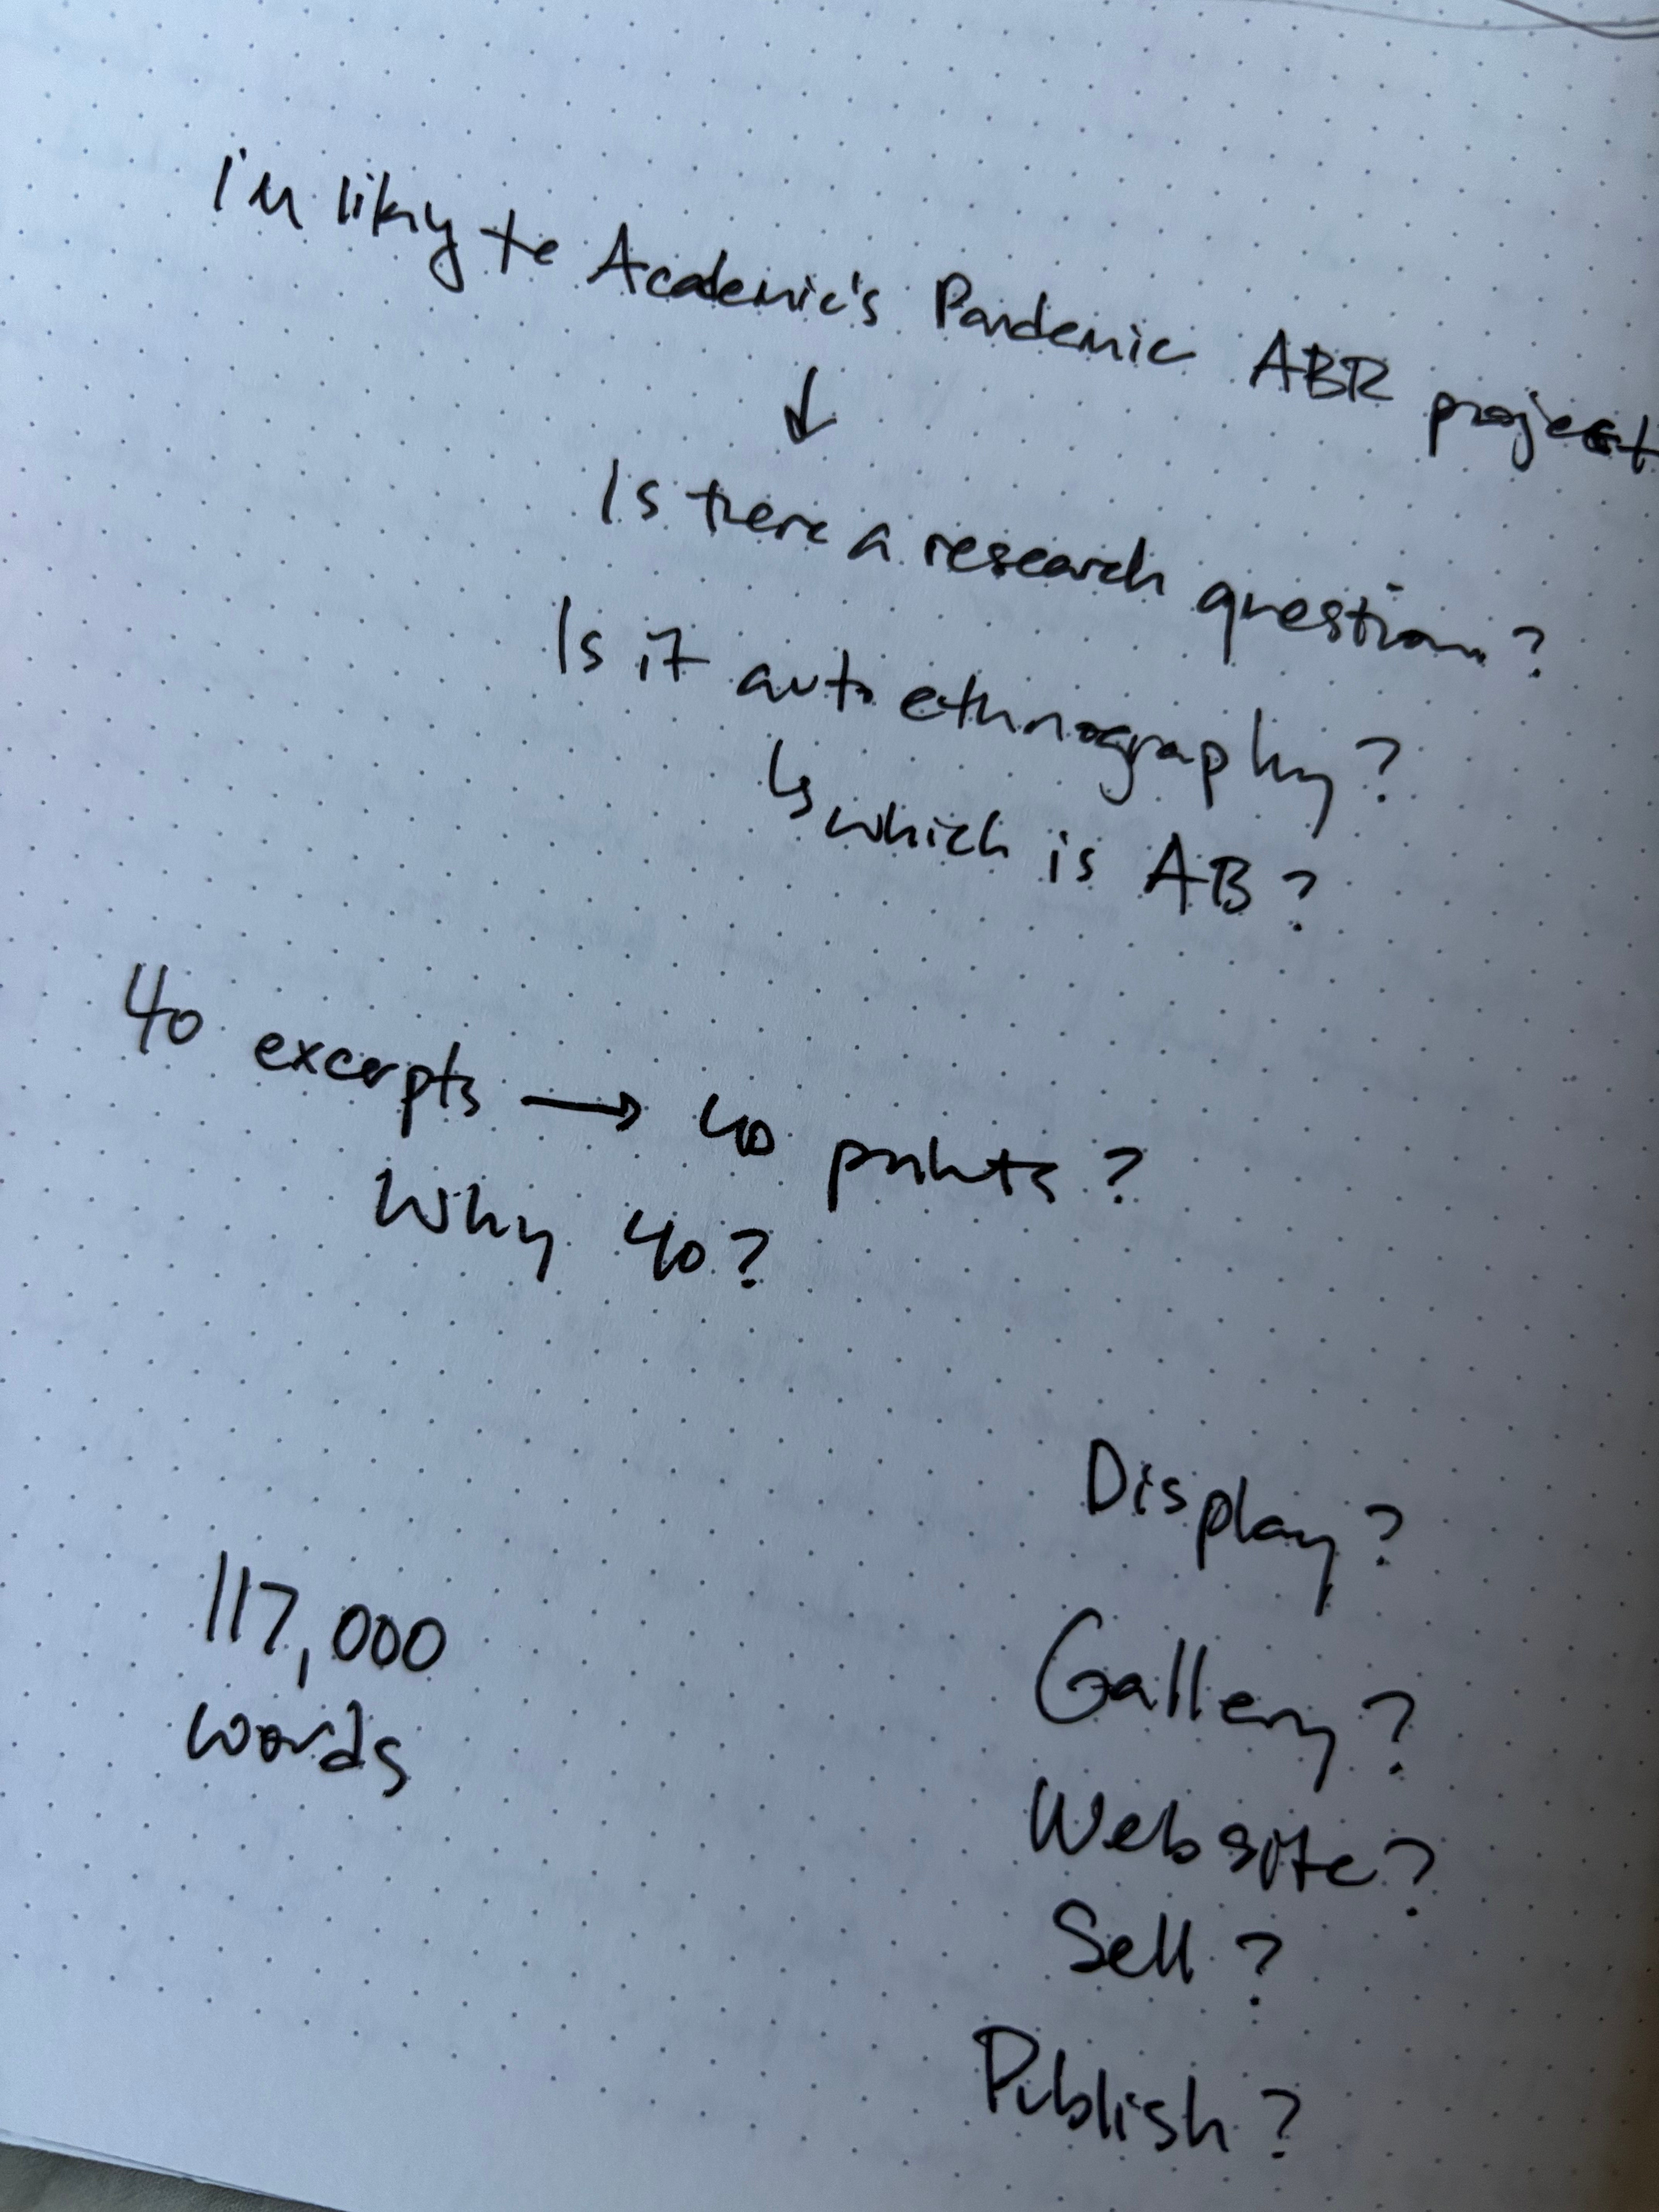 I'm liking the Academic's Pandemic ABR project
↓
Is there a research question?
Is it autoethnography?
↳ which is AB?
40 excerpts → 40 prints?
Why 40?
Display?
117,000
words
Gallery?
Website?
Sell?
Publish?